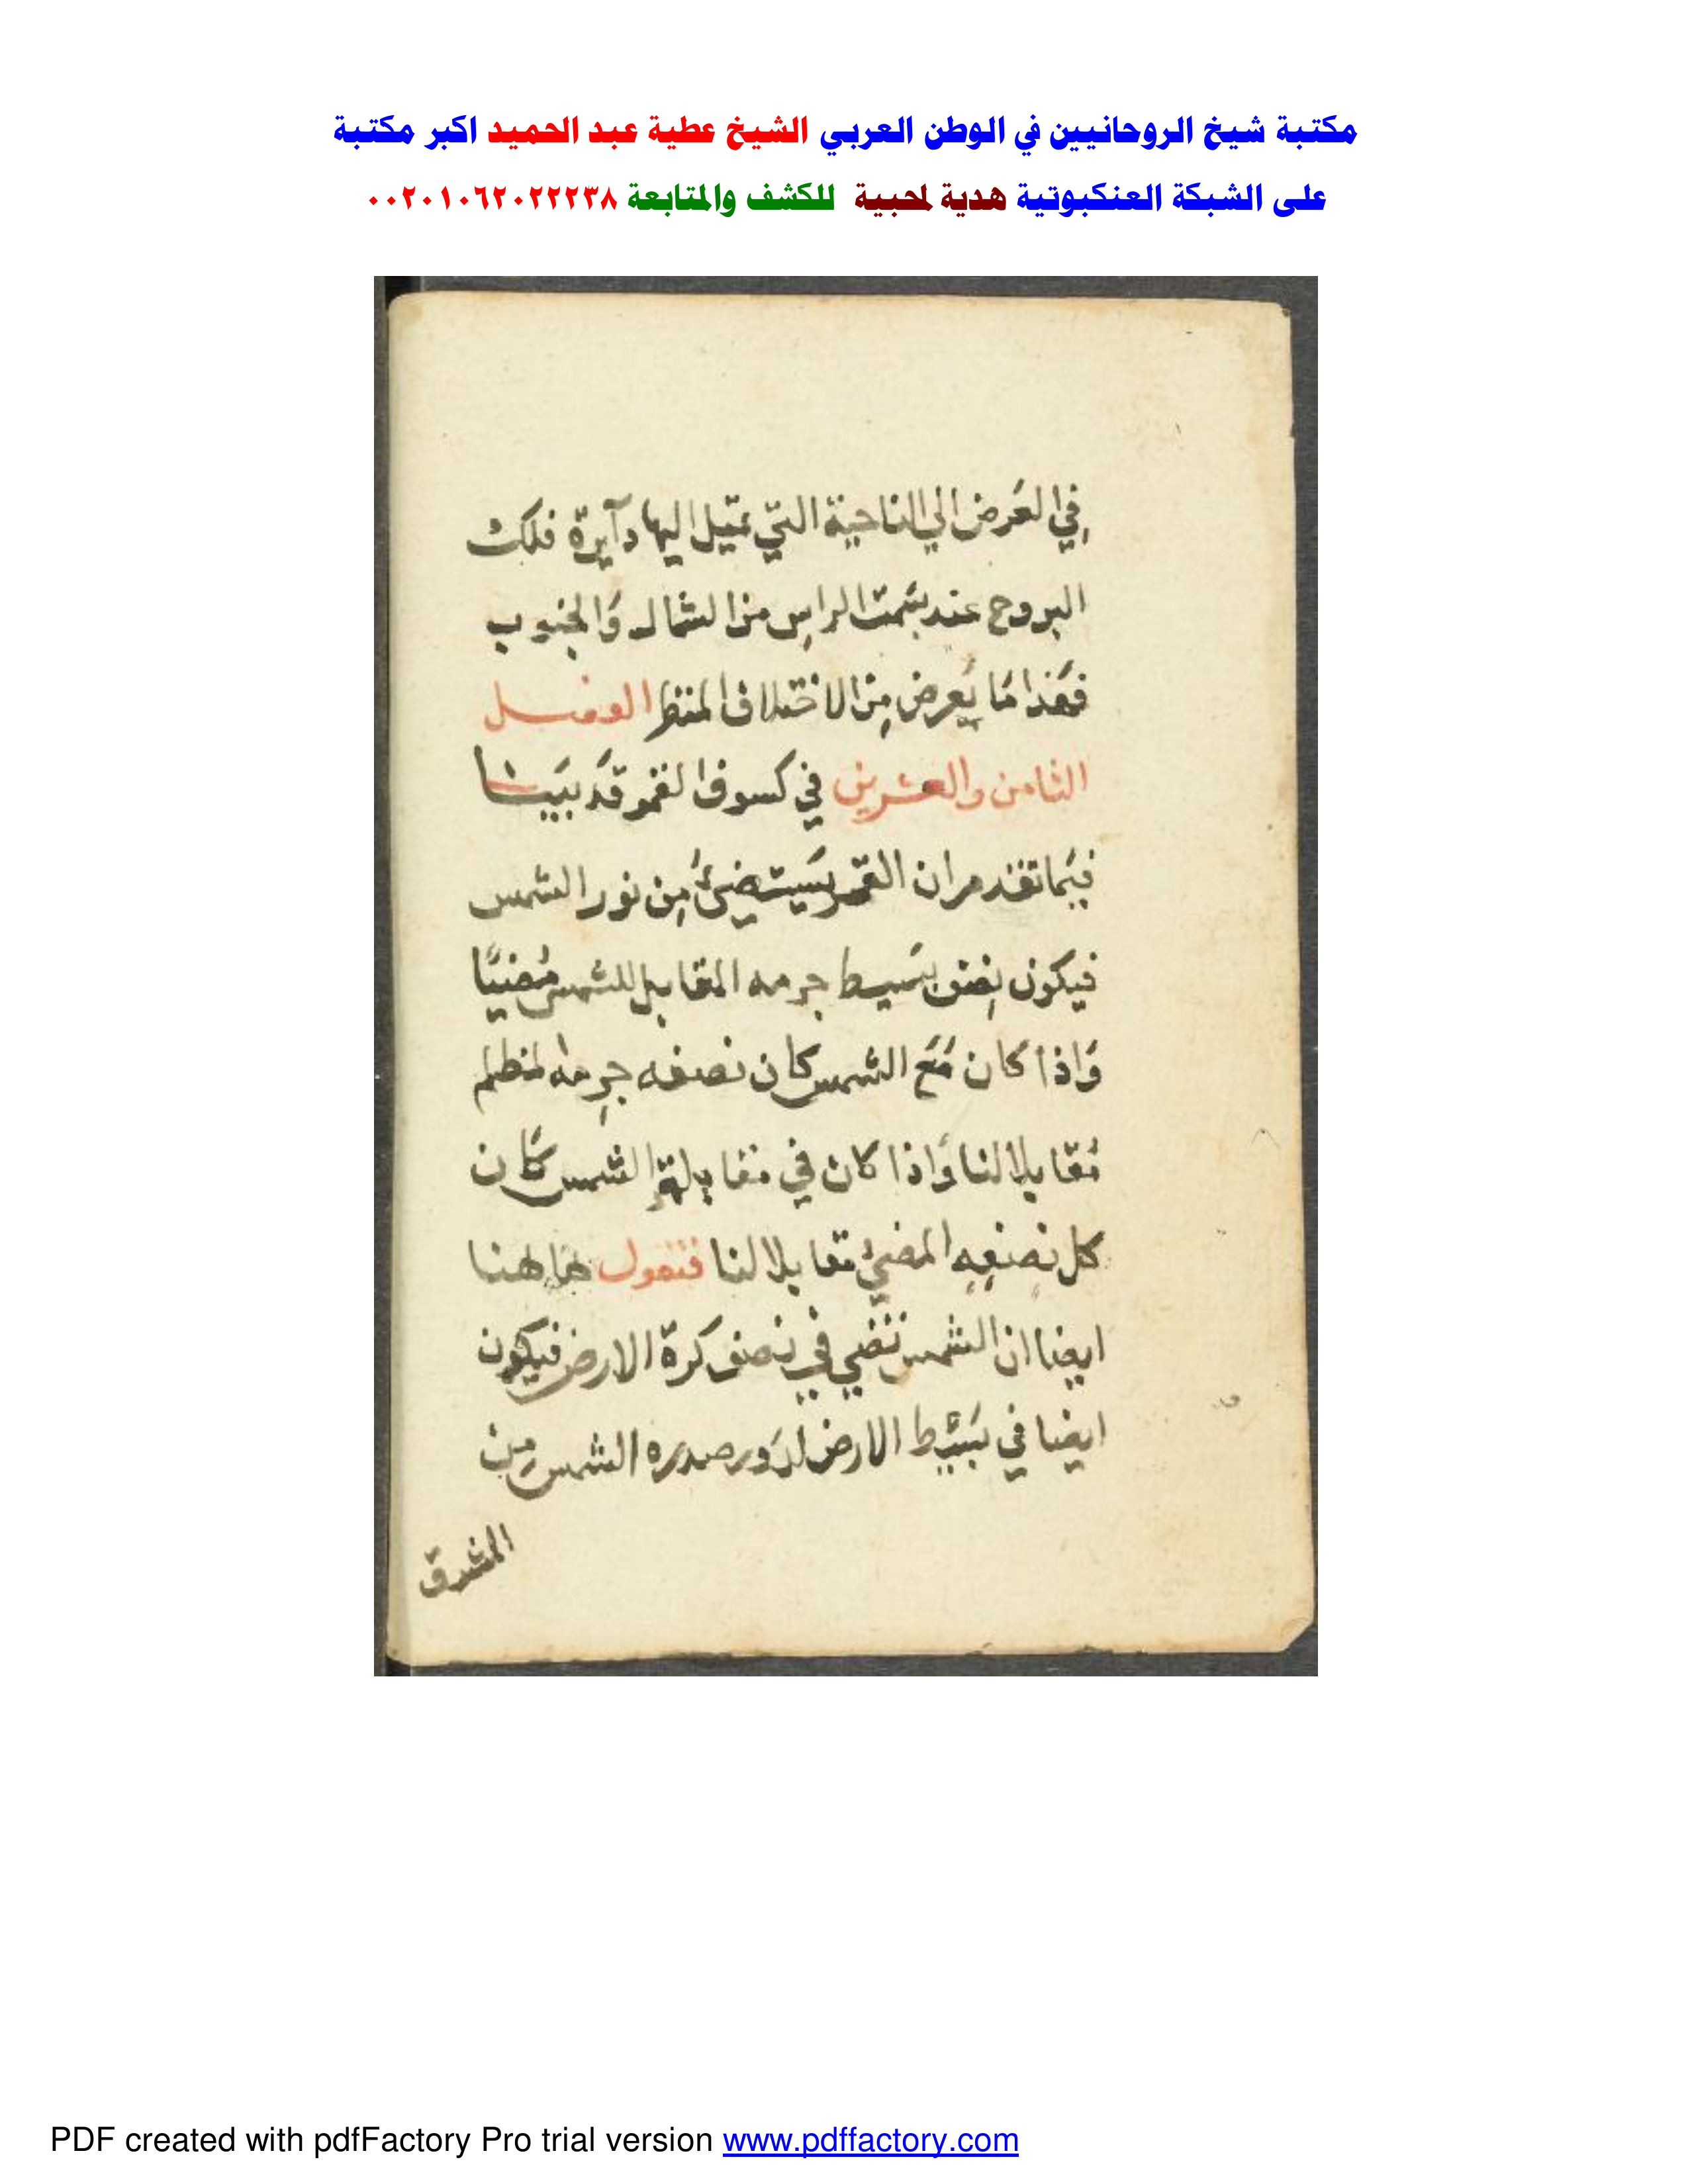 مكتبة شيخ الروحانيين في الوطن العربي الشيخ عطية عبد الحميد اكبر مكتبة
على الشبكة العنكبوتية هدية لمحبية للكشف والمتابعة ٠٠٢٠١٠٦٢٠٢٢٢٣٨
في العرض الي الناحية التي تميل اليها دآيرة فلك
البروج عند سمت الراس من الشمال والجنوب
فهذا ما يعرض من الاختلاف المنظر الفصل
الثامن والعشرين في كسوف القمر وقد بيينا
فيما تقدم ان القمر يستضئ من نور الشمس
فيكون نصف بسيط جرمه المقابل للشمس مضيًا
واذا كان مع الشمس كان نصفه جرمه المظلم
مقابلا لنا واذا كان في مقابلة الشمس كان
كل نصفه المضئ مقابلا لنا فنقول هاهنا
ايضا ان الشمس تضي في نصف كرة الارض فيكون
ايضا في بسيط الارض الشمس من
المشرق
PDF created with pdfFactory Pro trial version www.pdffactory.com